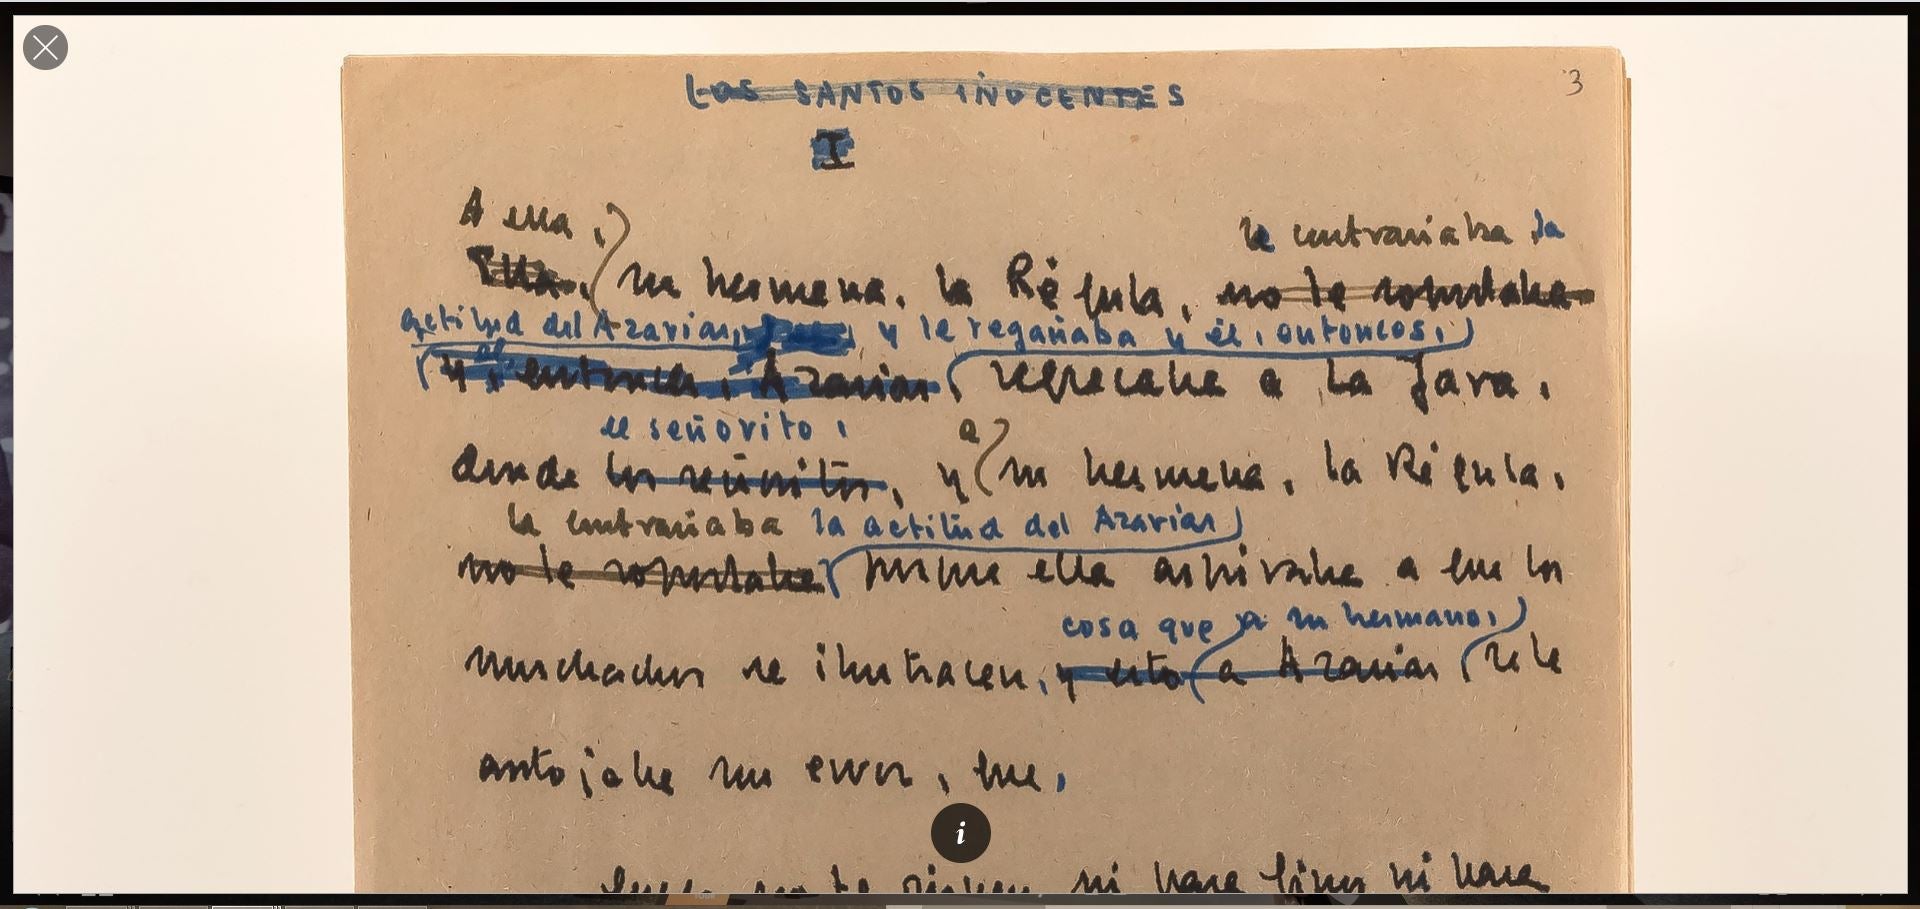 LOS SANTOS INOCENTES
3
I
A ella,
le contrariaba la
Ella, su hermana, la Régula, no le soportaba
actitud del Azarías, y le regañaba y él, entonces,
y, entonces, Azarías regresaba a la Jara,
el señorito,
a
donde los señoritos, y su hermana, la Régula,
la contrariaba la actitud del Azarías
no le soportaba porque ella aspiraba a que los
cosa que a su hermano,
muchachos se ilustrasen, y esto a Azarías se le
antojaba un error, que,
luego no te sirven ni para finos ni para
i
TOUR